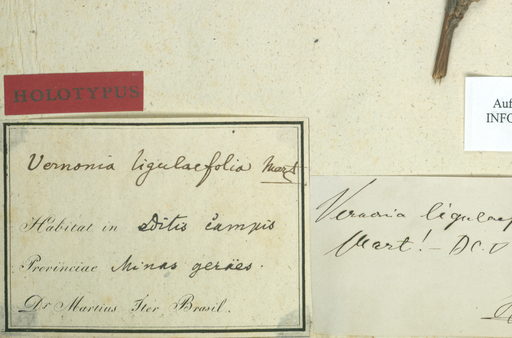 HOLOTYPUS
Vernonia ligulaefolia Mart
Habitat in editis campis
Provinciae Minas geräes.
Dr Martius Iter Brasil.
Auf
INFO
Vernonia ligulaef
Mart! - DC.